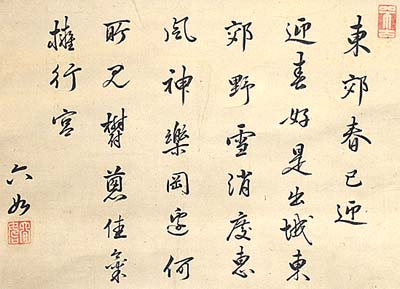 東郊春已迎
迎春好是出城東
郊野雪消度惠
風神樂岡邊何
所見鬱蔥佳氣
擁行宮
六如